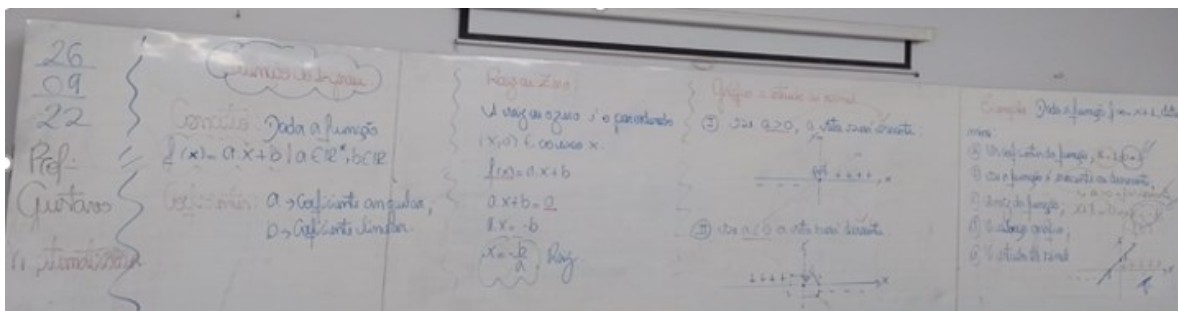 26
09
22
Prof:
Gustavo
Função do 1º grau
Conceito: Dada a função
f(x) = a.x+b | a ∈ R*, b ∈ R
Coeficientes: a → Coeficiente angular,
b → Coeficiente linear.
Raiz ou Zero:
A raiz ou zero é o par ordenado
(x, 0) ∈ ao eixo x.
f(x) = a.x+b
a x+b = 0
a x = -b
x = -b/a, Raiz
Gráfico e Estudo do sinal
I) Se a > 0, a reta será crescente.
+ + + + x
- - -
II) Se a < 0 a reta será decrescente
+ + + + x
- - -
Exemplo: Dada a função
a) Os coeficientes da função,
b) Se a função é crescente ou decrescente,
c) A raiz da função;
d) O esboço gráfico,
e) O estudo do sinal
x
+ + + +
- - -